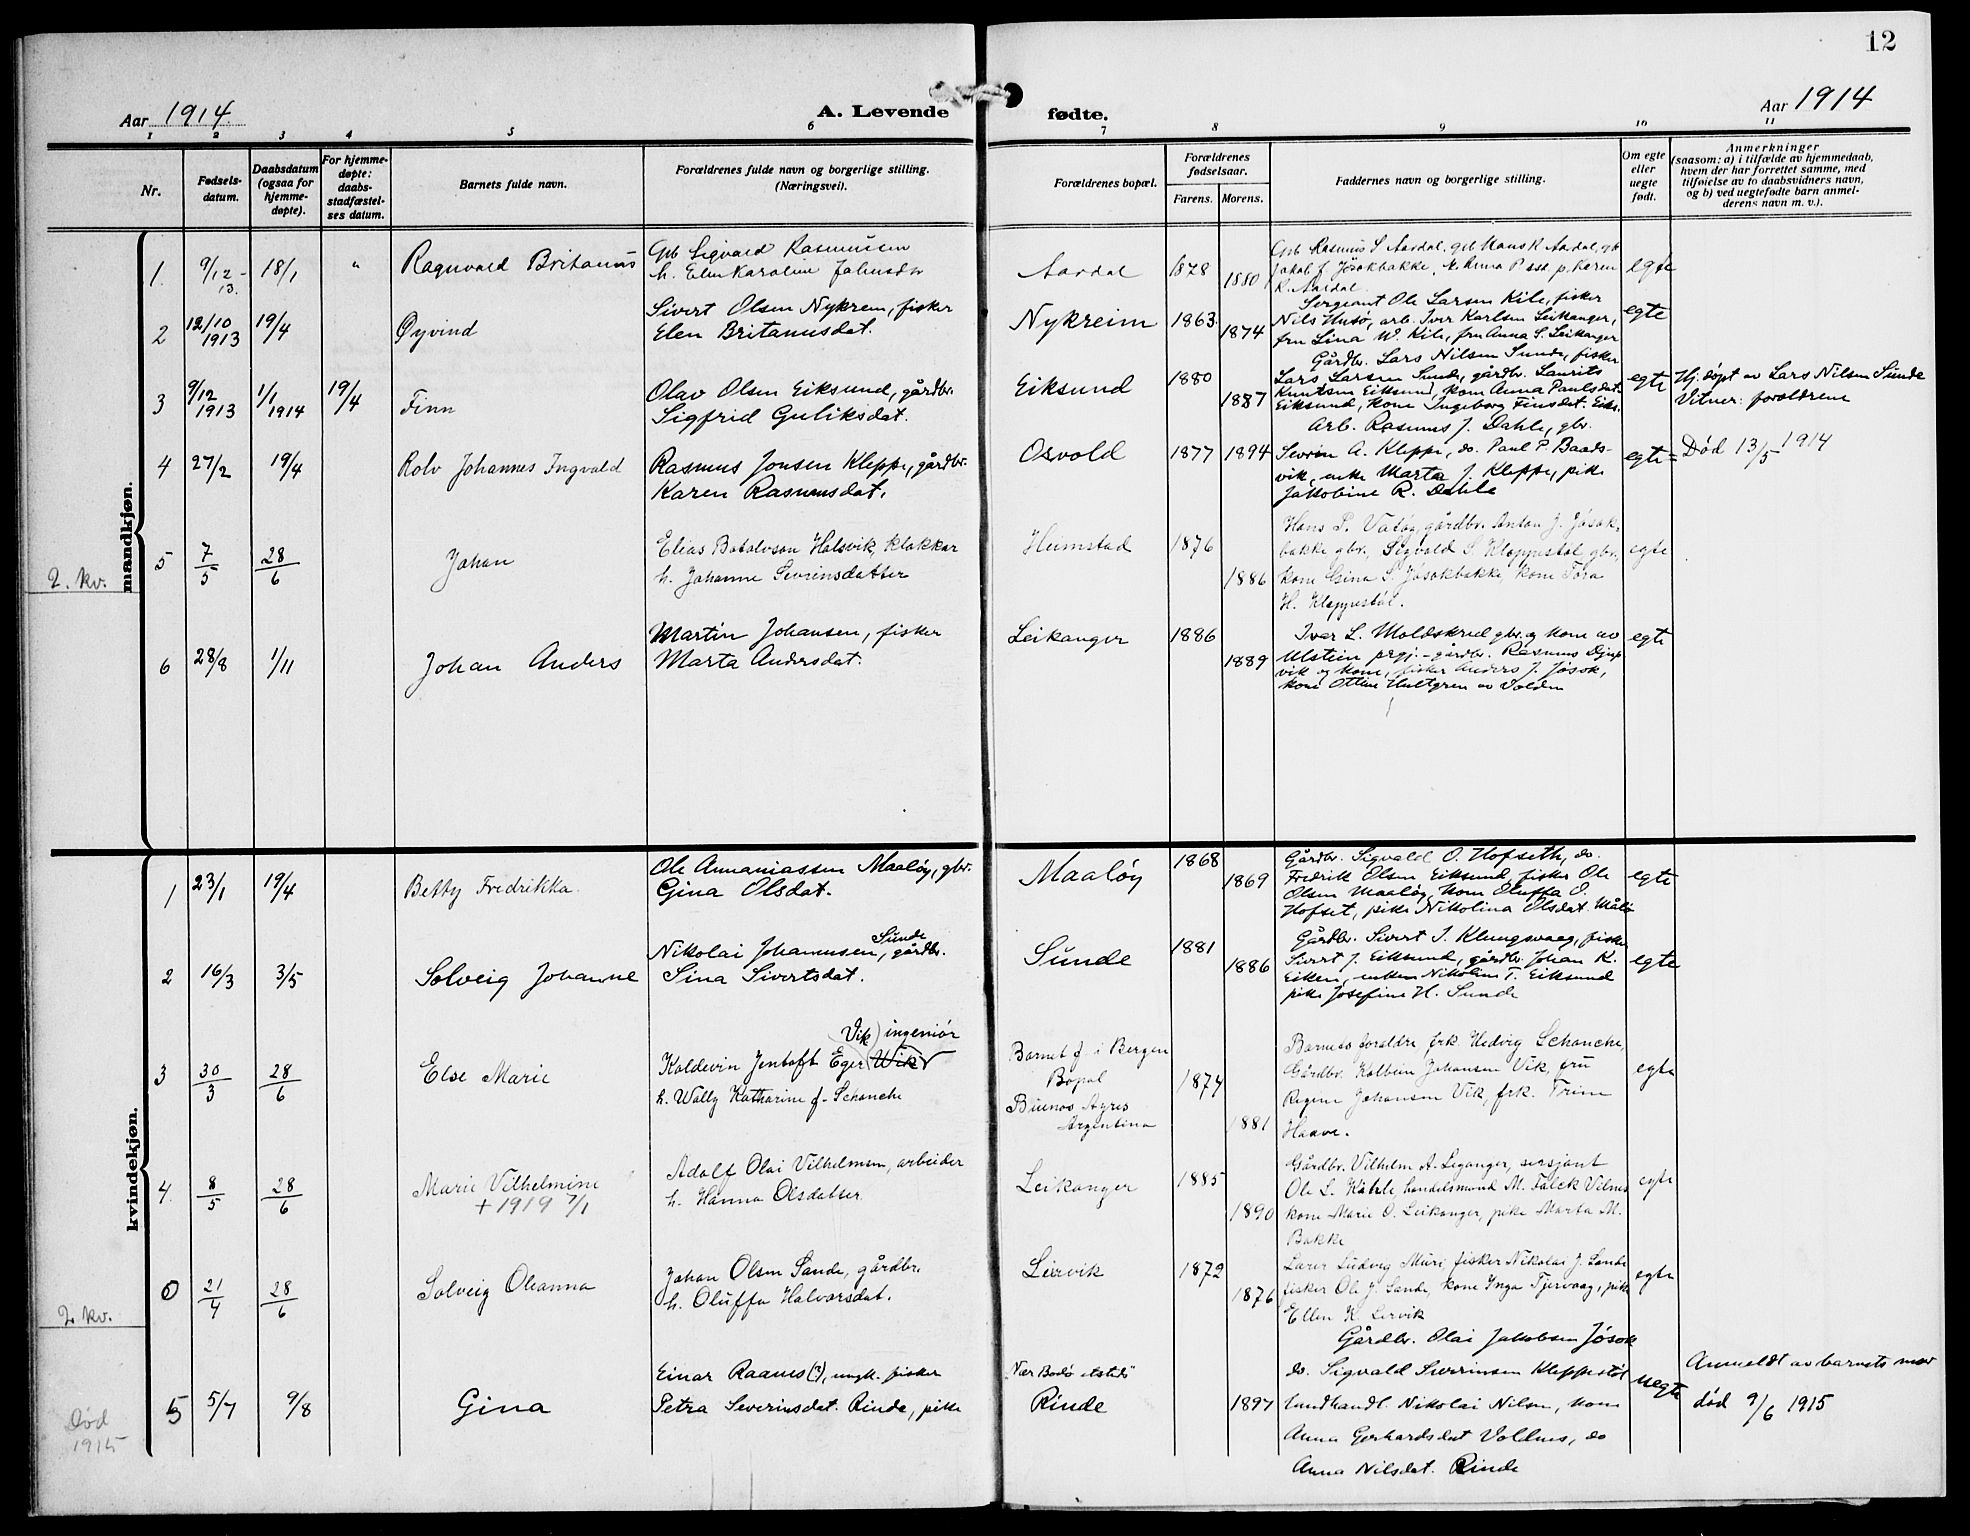 12
Aar 1914.
A. Levende
fødte.
Aar 1914
1 2 3 4 5 6 7 8 9 10 11
Nr.
Fødsels-
datum.
Daabsdatum
(ogsaa for
hjemme-
døpte).
For hjemme-
døpte:
daabs-
stadfæstel-
ses datum.
Barnets fulde navn.
Forældrenes fulde navn og borgerlige stilling.
(Næringsvei).
Forældrenes bopæl.
Forældrenes
fødselsaar.
Farens. Morens.
Faddernes navn og borgerlige stilling.
Om egte
eller
uegte
født.
Anmerkninger
(saasom: a) i tilfælde av hjemmedaab,
hvem der har forrettet samme, med
tilføielse av to daabsvidners navn,
og b) ved uegtefødte barn anmel-
derens navn m. v.).
mandkjøn.
1. 9/12 - 13. 18/1 " Ragnvald Britanus
Gb Sigvald Rasmussen
h. Elen Karoline
Aardal 1878 1880
Gb Rasmus S Aardal, gb Hans R Aardal, gb
Jakob J. Jøsokbakke,
R. Aardal.
egte
2 12/10 1913 19/4 Øyvind
Sivert Olsen Nykrem, fisker
Elen Britanusdat.
Nykreim 1863 1874
Sergeant Ole Larsen Kile, fisker
Nils Husø, arb. Iver Karlsen Leikanger,
fru Lina W. Kile, fru Anna S. Leikanger
egte
3 9/12 1913 1/1 1914 19/4 Finn
Olav Olsen Eiksund, gårdbr.
Sigfrid Guliksdat.
Eiksund 1880 1887
Gårdbr. Lars Nilsen Sunde, fisker
Lars Larsen Sunde, gårdbr. Laurits
Knutsen Eiksund, kone Anna Paulsdat.
Eiksund, kone Ingeborg Finsdat. Eiks.
egte
Hj. døpt av Lars Nilsen Sunde
Vitner: forældrene
4 27/2 19/4 Rolv Johannes Ingvald
Rasmus Jonsen Kleppe, gårdbr.
Karen Rasmusdat.
Osvold 1877 1894
Arb. Rasmus J. Dahle, gbr.
Sevrin A. Kleppe, do. Paul P. Baads-
vik, enke Marta J. Kleppe, pike
Jakobine R. Dahle
egte
Død 13/5 1914
2. kv.
5 7/5 28/6 Johan
Elias Botolvson Halsvik, klokkar
h. Johanne Sevrinsdatter
Heimstad 1876 1886
Hans P. Vatøy, gårdbr. Anton J. Jøsok-
bakke gbr., Sigvald S. Kleppestøl gbr,
kone Gina S. Jøsokbakke, kone Tora
H. Kleppestøl.
egte
6 28/8 1/11 Johan Anders
Martin Johansen, fisker
Marta Andersdat.
Leikanger 1886 1889
Iver L. Moldskred gbr. og kone av
Ulstein prgj. - gårdbr. Rasmus Djup-
vik og kone, fisker Anders J. Jøsok,
kone Otline Hultgren av Volden
egte
kvindekjøn.
1 23/1 19/4 Betty Fredrikka.
Ole Annaniassen Maaløy, gbr.
Gina Olsdat.
Maaløy 1868 1869
Gårdbr. Sigvald O. Hofseth, do.
Fredrik Olsen Eiksund, fisker Ole
Olsen Maaløy, kone Oluffa O.
Hofset, pike Nikolina Olsdat. Målø
egte
2 16/3 3/5 Solveig Johanne
Nikolai Johannesen Sunde, gårdbr.
Sina Sivertsdat.
Sunde 1881 1886
Gårdbr. Sivert I. Klungsvaag, fisker
Sivert J. Eiksund, gårdbr. Johan K.
Eiken, enken Nikoline T. Eiksund
pike Josefine H. Sunde
egte
3 30/3 28/6 Else Marie
Vik) ingeniør
Koldevin Jentoft Eger (Wik)
h. Wally Katharine f. Schanche
Barnet f. i Bergen
Bopal
Buenos Ayres
Argentina
1874 1881
Barnets foraldre, frk. Hedvig Schanche,
Gårdbr. Kolbein Johansen Vik, fru
Regine Johansen Vik, frk. Trine
Haave.
egte
4. 8/5 28/6 Marie Vilhelmine
+ 1919 7/1
Adolf Olai Vilhelmsen, arbeider
h. Hanna Olsdatter
Leikanger 1885 1890
Gårdbr. Vilhelm A. Leganger, sersjant
Ole L. Kåhrle, handelsmand M. Falck Vilnes
kone Marie O. Leikanger, pike Marta M.
Bakke
egte
0 21/4 28/6 Solveig Oleanna
Johan Olsen Sande, gårdbr.
h. Oluffa Halvorsdat.
Leirvik 1872 1876
Lærer Ludvig Muri, fisker Nikolai J. Sande
fisker Ole J. Sande, kone Inga Tjervaag, pike
Ellen K. Lervik
egte
2. kv.
5 5/7 9/8 Gina
Einar Raanes (?), ungk. fisker
Petra Severinsdat. Rinde, pike
"Nær Bodø etsteds"
Rinde 1897
Gårdbr. Olai Jakobsen Jøsok
do. Sigvald Sverrinsen Kleppestøl
landhandl. Nikolai Nilsen, kone
Anna Gerhardsdat Voldnes, do
Anna Nilsdat. Rinde
uegte
Anmeldt av barnets mor
død 9/6 1915
Død
1915